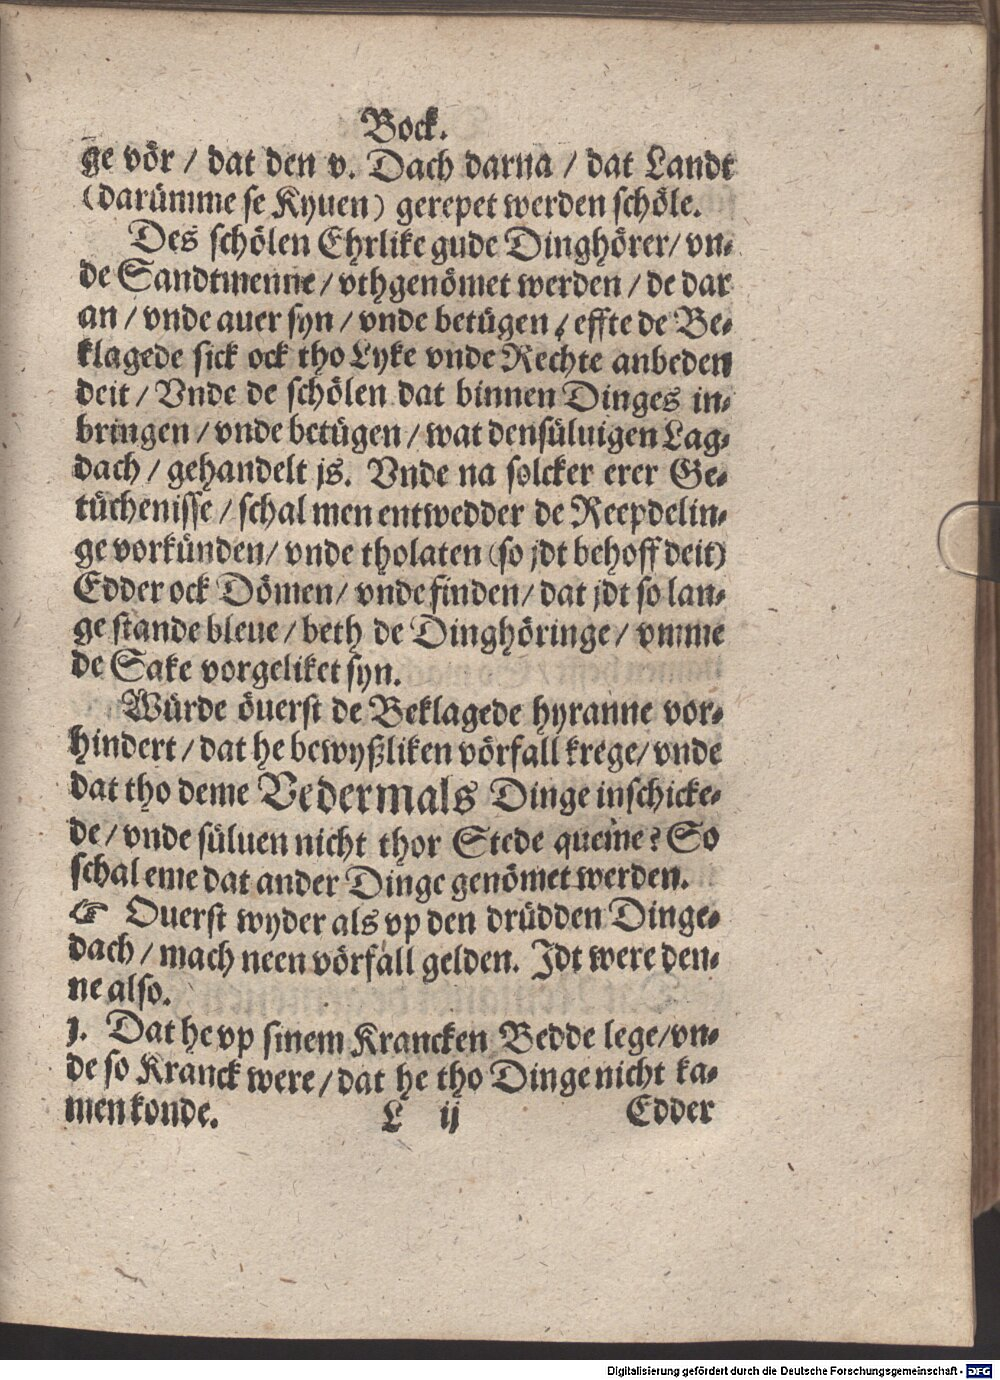 Bock.
ge vör / dat den v. Dach darna / dat Landt
(darümme se Kyuen) gerepet werden schöle.
Des schölen Ehrlike gude Dinghörer/ vn⸗
de Sandtmenne / vthgenömet werden / de dar
an / vnde auer syn / vnde betügen / effte de Be⸗
klagede sick ock tho Lyke vnde Rechte anbeden
deit / Vnde de schölen dat binnen Dinges in⸗
bringen / vnde betügen / wat densüluigen Lag⸗
dach / gehandelt js. Vnde na solcker erer Ge⸗
tüchenisse / schal men entwedder de Reepdelin⸗
ge vorkünden/ vnde tholaten (so jdt behoff deit)
Edder ock Dömen/ vnde finden/ dat jdt so lan⸗
ge stande bleue / beth de Dinghöringe / vmme
de Sake vorgeliket syn.
Würde öuerst de Beklagede hyranne vor⸗
hindert / dat he bewyßliken vörfall krege/ vnde
dat tho deme Vedermals Dinge inschicke⸗
de / vnde süluen nicht thor Stede queme? So
schal eme dat ander Dinge genömet werden.
☞ Ouerst wyder als vp den drüdden Dinge⸗
dach / mach neen vörfall gelden. Jdt were den⸗
ne also.
1. Dat he vp sinem Krancken Bedde lege/vn⸗
de so Kranck were / dat he tho Dinge nicht ka⸗
men konde. L ij Edder
Digitalisierung gefördert durch die Deutsche Forschungsgemeinschaft - DFG